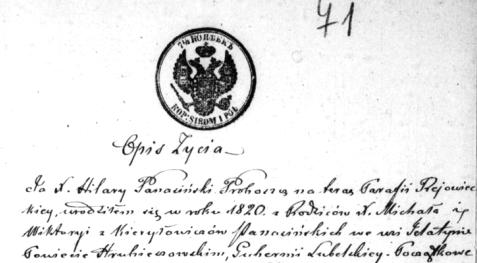 71
7½ КОПѢЕКЪ
KOP. SIEDM I PÓŁ
Opis Życia
Ja X. Hilary Panasiński Proboszcz na teraz Parafii Rejowiec
kiey, urodziłem się w roku 1820. z Rodziców X. Michała i
Wiktoryi z Kieryłowiczów Panasińskich we wsi
Powiecie Hrubieszowskim, Gubernii Lubelskiey. Początkowe